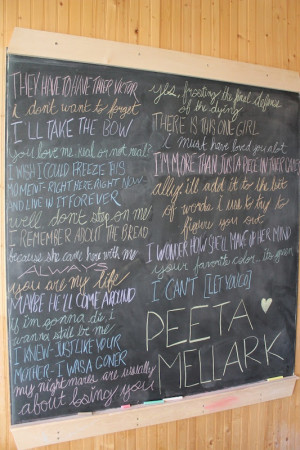 THEY HAVE TO HAVE THEIR VICTOR
i don't want to forget
I'LL TAKE THE BOW
you love me. real or not real?
I WISH I COULD FREEZE THIS
MOMENT - RIGHT HERE RIGHT NOW -
AND LIVE IN IT FOREVER
well don't step on me
I REMEMBER ABOUT THE BREAD
because she came here with me
ALWAYS
you are my life
MAYBE HE'LL COME AROUND
if i'm gonna die, i
wanna still be me
I KNEW - JUST LIKE YOUR
MOTHER - I WAS A GONER
my nightmares are usually
about losing you
yes, frosting. the final defense
of the dying
THERE IS THIS ONE GIRL
i must have loved you a lot
I'M MORE THAN JUST A PIECE IN THEIR GAMES
ally. i'll add it to the list
of words i use to try to
figure you out
I WONDER HOW SHE'LL MAKE UP HER MIND
your favorite color.. it's green
I CAN'T [LET YOU GO]
PEETA
MELLARK